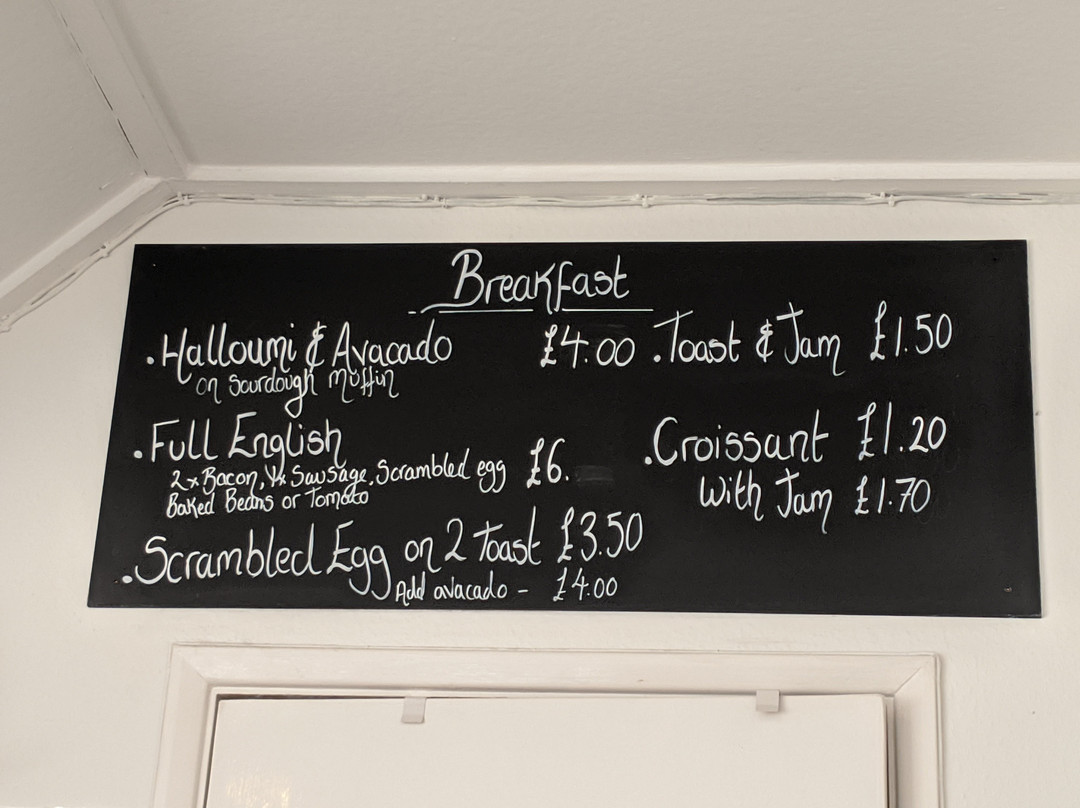 Breakfast
• Halloumi & Avacado £4.00
on Sourdough Muffin
• Full English
2x Bacon, 1x Sausage, Scrambled egg £6.
Baked Beans or Tomato
• Scrambled Egg on 2 Toast £3.50
Add avacado - £4.00
• Toast & Jam £1.50
• Croissant £1.20
With Jam £1.70